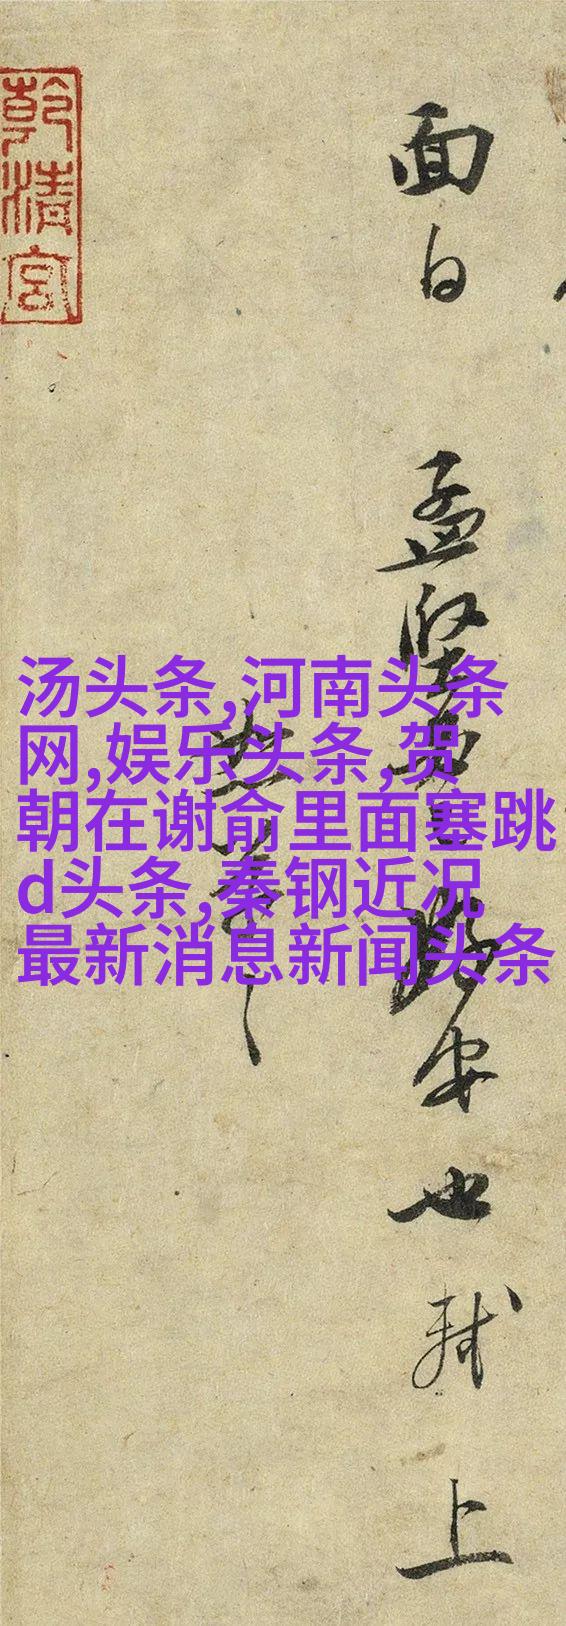 乾清宫
面白 孟坚
安也 轼 上
汤头条,河南头条
网,娱乐头条,贺
朝在谢俞里面塞跳
d头条,秦钢近况
最新消息新闻头条